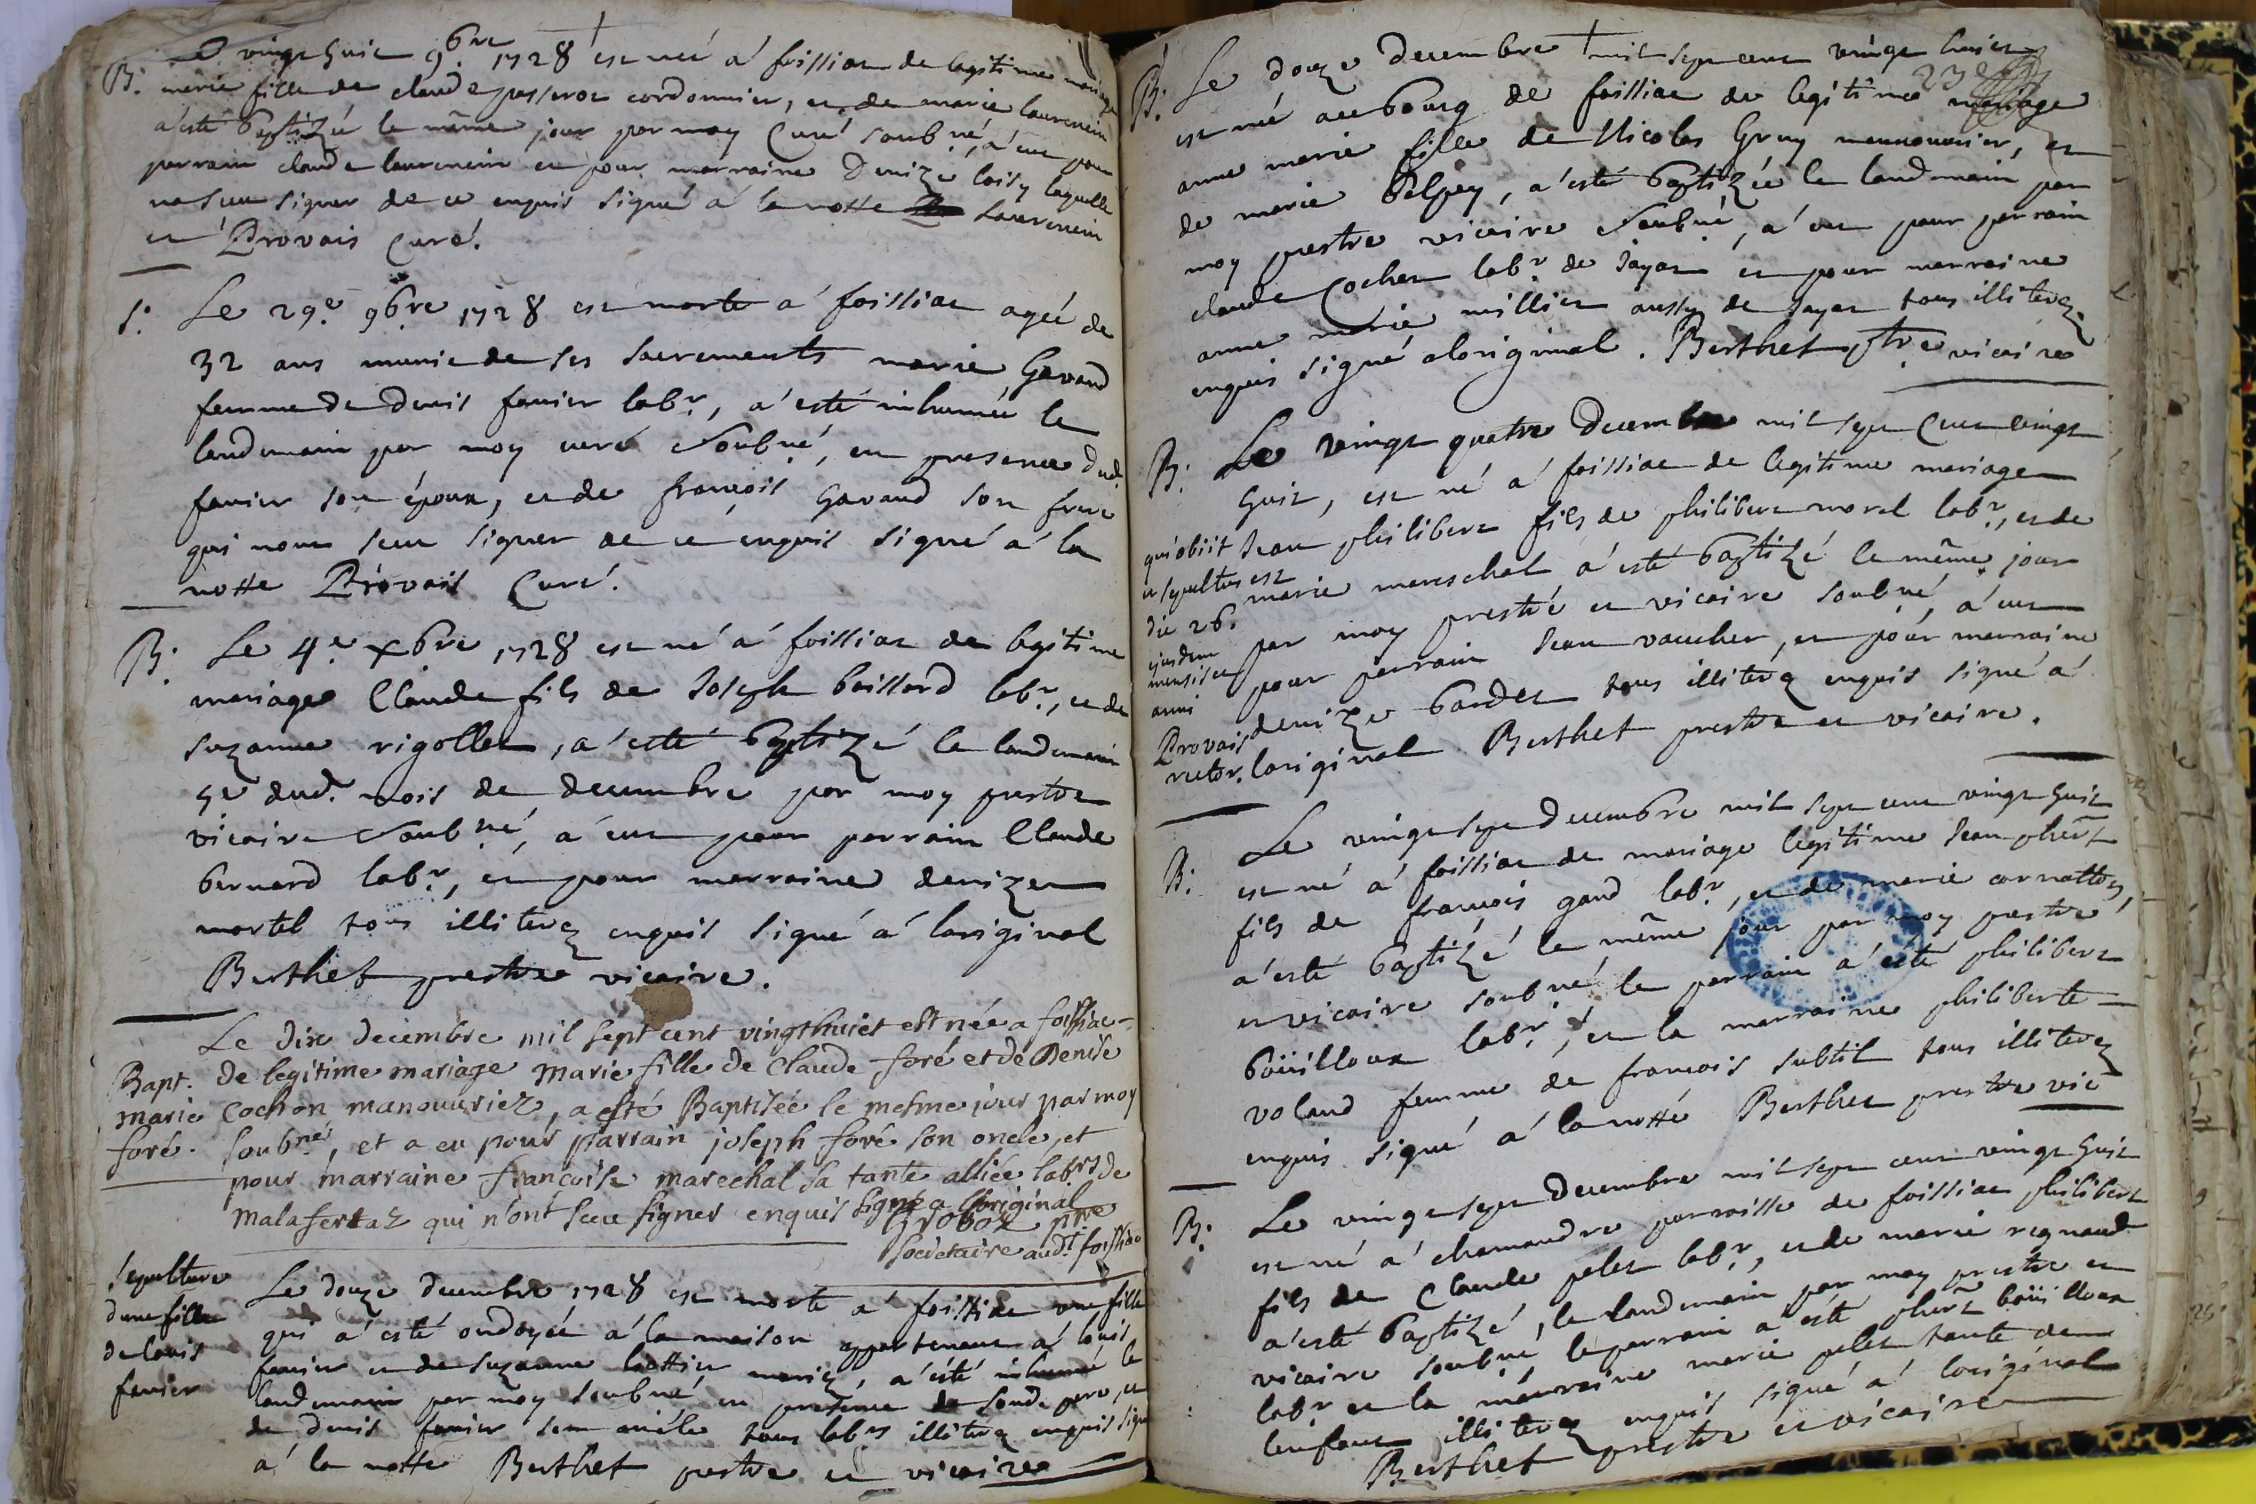 B. Le vingt huit 9bre 1728 est née á foissiat de legitime mariage
marie fille de claude passerot cordonnier, et de marie laurencin
a'esté baptizée le même jour par moy Curé soubné, a' eut pour
parrain claude laurencin et pour marraine Denize loisy laquelle
na sceu signer de ce enquis signé á la notte laurencin
et Provais Curé.
S. Le 29e 9bre 1728 est morte a' foissiat agée de
32 ans munie de ses sacrements marie Gavand
femme de denis favier labr, a' esté inhumée le
lendemain par moy curé soubné, en presence dud.
favier son époux, et de françois Gavand son frere
qui n'ont sceu signer de ce enquis signé a' la
notte Provais Curé.
B. Le 4e xbre 1728 est né a' foissiat de legitime
mariage Claude fils de Joseph boissard labr, et de
suzanne rigollet, a' esté baptizé le lendemain
5e dud. mois de decembre par moy prestre
vicaire soubné, a' eut pour parrain Claude
bernard labr, et pour marraine denize
martel tous illiterez enquis signé a' l'original
Berthet prestre vicaire.
Le dix decembre mil sept cent vingthuict est née a foissiac
Bapt. de legitime mariage Marie fille de Claude foré et de Denise
marie Cochon manouuriez, a esté Baptisée le mesme jour par moy
foré. soubné, et a eu pour parrain joseph foré son oncle, et
pour marraine francoise marechal sa tante alliée labrs de
malafertaz qui n'ont sceu signer enquis signé a l'original
Grobox pbre
societaire aud.t foissiac
Sepulture Le douze decembre 1728 est morte a' foissiac une fille
dune fille qui a' esté ondoyée a' la maison appartenant a' louis
de louis favier et de suzanne mariez, a' été inhumé le
favier lendemain par moy soubné en presence de soud. pere, et
de denis favier son labrs illiterez enquis signé
a' la notte Berthet prestre et vicaire
B. Le douze decembre mil sept cent vingt huict
23e
est née au bourg de foissiac de legitime mariage
anne marie fille de Nicolas Gruy mannouvrier, et
de marie belpey, a' esté baptizée le landmain par
moy prestre vicaire soubné, a' eut pour parrain
claude Cochet labr de Jayat et pour marraine
anne marie millier aussy de Jayat tous illiterez
enquis signé aloriginal. Berthet ptre vicaire
B. Le vingt quatre decembre mil sept Cent vingt
huit, est né a' foissiac de legitime mariage
qui obiit Jean philibert fils de philibert morel labr, et de
et sepultus est marie mareschal a' esté baptizé le même jour
die 26. par moy prestre et vicaire soubné, a' eut
ejusdem mensis et pour parrain Jean vaucher, et pour marraine
anni denize bardet tous illiterez enquis signé a'
Provais
rector. loriginal Berthet prestre et vicaire.
B. Le vingt sept decembre mil sept cent vingt huit
est né a' foissiac de mariage legitime Jean phert
fils de françois gand labr, et de marie cornatton,
a' esté baptizé le même jour par moy prestre
et vicaire soubné le parrain a' esté philibert
boüilloux labr, et la marraine philiberte
voland femme de françois subtil tous illiterez
enquis signé a' la notte Berthet prestre vic
B. Le vingt sept decembre mil sept cent vingt huit
est né a' chamandre parroisse de foissiac philibert
fils de Claude pelet labr, et de marie regnaud
a' esté baptizé, le landmain par moy prestre et
vicaire soubné le parrain a' esté phert boüilloux
labr et la marraine marie pelet tante de
l'enfant illiterez enquis signé a' loriginal
Berthet prestre et vicaire